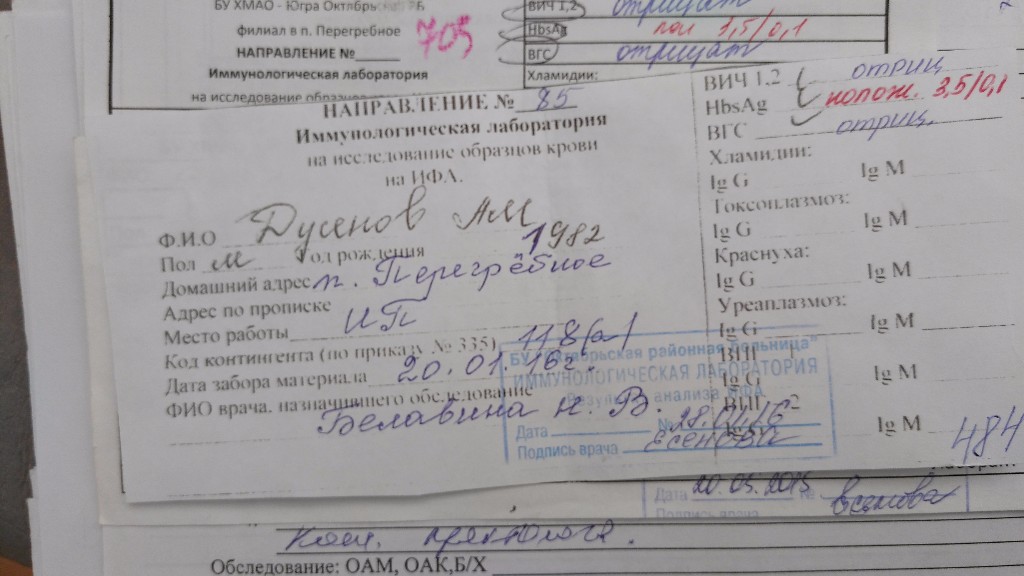 БУ ХМАО - Югра Октябрьская РБ
филиал в п. Перегребное
НАПРАВЛЕНИЕ №
705
Иммунологическая лаборатория
на исследование образцов крови
ВИЧ 1,2 отрицат
HbsAg пол 3,5/0,1
ВГС отрицат
Хламидии:
НАПРАВЛЕНИЕ № 85
Иммунологическая лаборатория
на исследование образцов крови
на ИФА.
Ф.И.О Дусенов АМ
Пол м Год рождения 1982
Домашний адрес п. Перегрёбное
Адрес по прописке
Место работы ИП
Код контингента (по приказу № 335) 118(а)
Дата забора материала 20.01.16г.
ФИО врача. назначившего обследование
Белавина Н. В.
ВИЧ 1.2 отриц
HbsAg полож. 3,5/0,1
ВГС отриц.
Хламидии:
Ig G Ig M
Токсоплазмоз:
Ig G Ig M
Краснуха:
Ig G Ig M
Уреаплазмоз:
Ig G Ig M
ВПГ 1
Ig G Ig M
ВПГ 2
Ig M
484
БУ "Октябрьская районная больница"
ИММУНОЛОГИЧЕСКАЯ ЛАБОРАТОРИЯ
Результат анализа ИФА
Дата № 28.01.16
Подпись врача Есенова
Дата 20.03.2015 № Есенова
Подпись врача
Обследование: ОАМ, ОАК,Б/Х